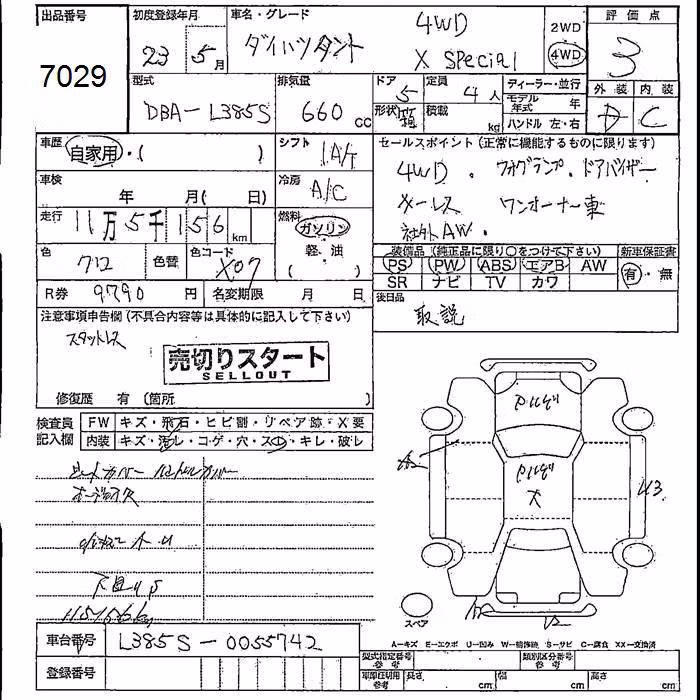 出品番号
7029
初度登録年月
23年5月
車名・グレード
ダイハツ タント
4WD
X SPecial
2WD
4WD
評価点
3
外装 内装
D C
型式
DBA-L385S
排気量
660 cc
ドア 5
定員 4人
形状 箱
積載 kg
ディーラー・並行
モデル年式 年
ハンドル 左・右
車歴
自家用・( )
シフト
IA/T
車検
年 月( 日)
冷房
A/C
走行
11万5千156km
燃料
ガソリン
軽・油
( )
色
クロ
色替
色コード
X07
R券 9790円
名変期限 月 日
セールスポイント(正常に機能するものに限ります)
4WD ・ フォグランプ ・ ドアバイザー
キーレス ワンオーナー車
社外AW ・
装備品(純正品に限り○をつけて下さい)
PS PW ABS エアB AW
SR ナビ TV カワ
新車保証書
有・無
後日品
取説
注意事項申告欄(不具合内容等は具体的に記入して下さい)
スタットレス
売切りスタート
SELLOUT
修復歴 有(箇所 )
検査員記入欄
FW キズ・飛石・ヒビ割・リペア跡・X要
内装 キズ・汚レ・コゲ・穴・スレ・キレ・破レ
シートカバー ハンドルカバー
下廻りS
115156k
A2
U3
スペア
A=キズ E=エクボ U=凹み W=補修跡 S=サビ C=腐食 XX=交換済
車台番号 L385S-0055742
登録番号
型式指定番号 参考
類別区分番号 参考
車庫証明用 参考
長さ cm 幅 cm 高さ cm